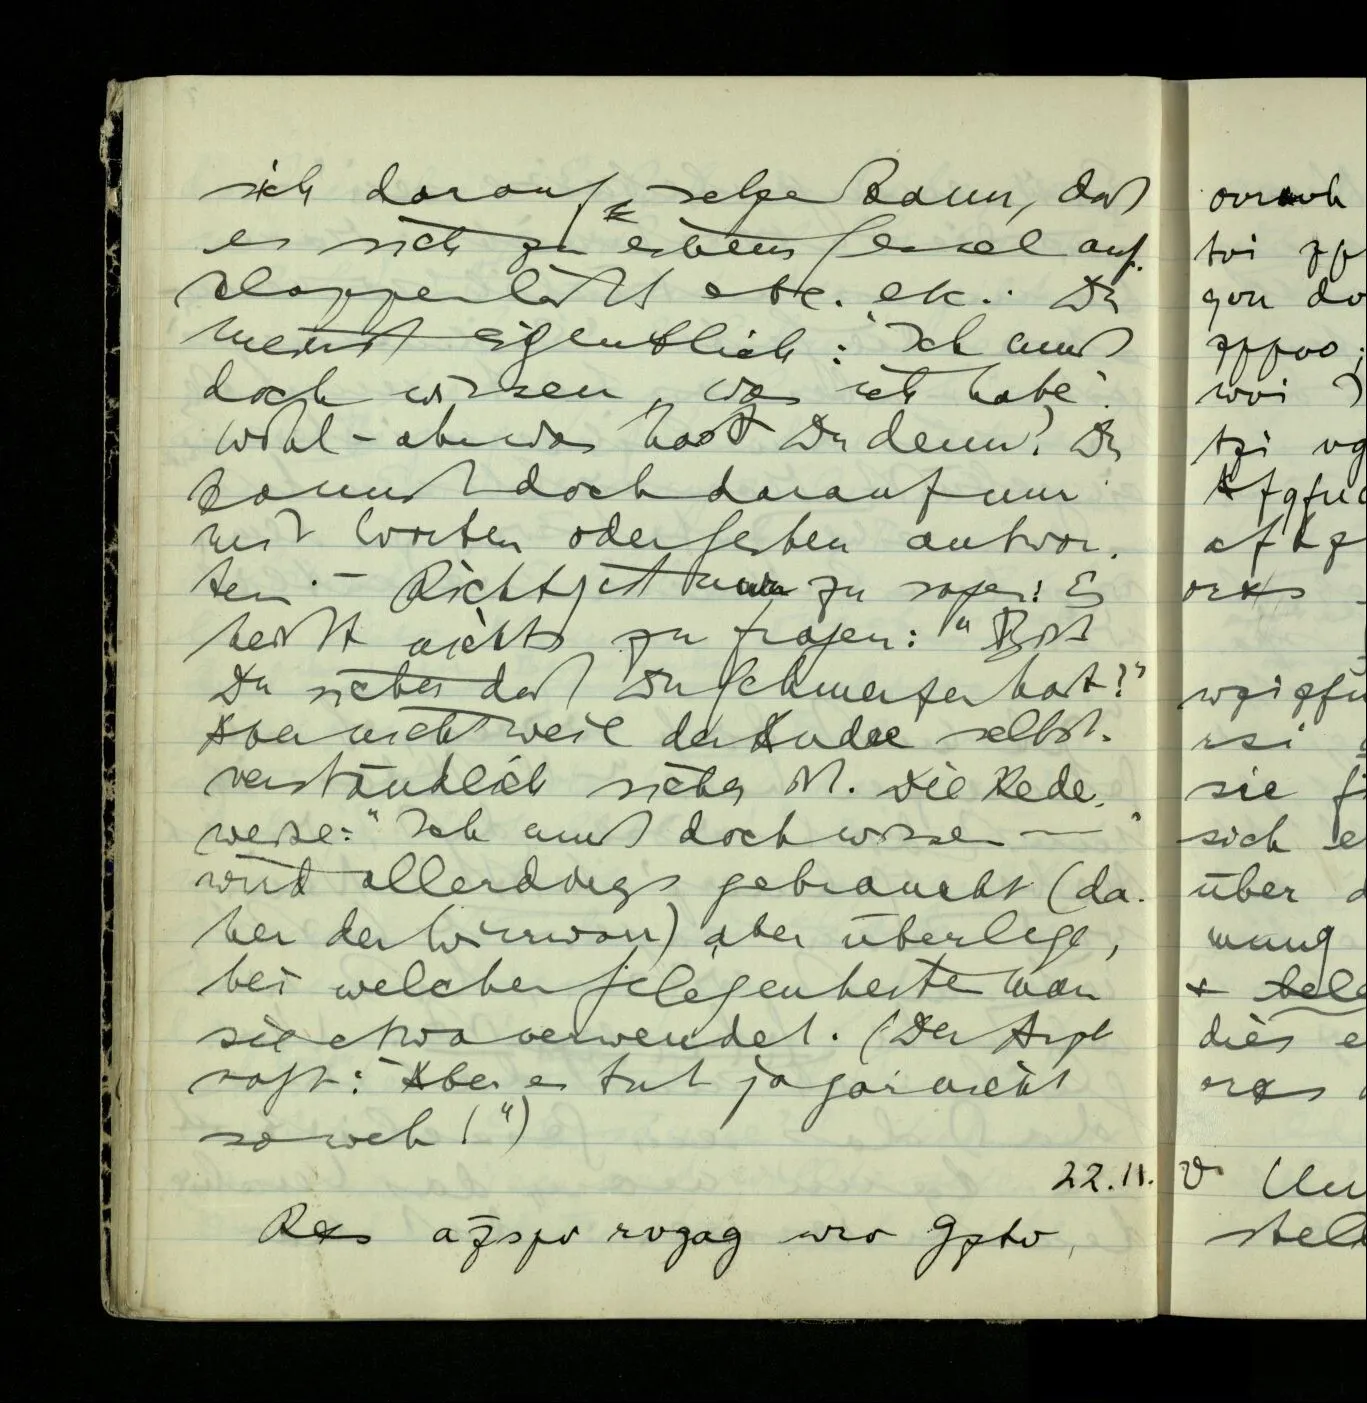 sich darauf setzen kann, daß
es sich zu einem Sessel auf-
klappen läßt etc. etc.. Du
meinst eigentlich: "Ich muß
doch wissen, was ich habe".
Wohl – aber was hast Du denn? Du
kannst doch darauf nur
mit Worten oder Gesten antwor-
ten. – Richtig ist nur zu sagen: Es
heißt nichts zu fragen: "Bist
Du sicher daß Du Schmerzen hast?"
Aber nicht weil der Andere selbst-
verständlich sicher ist. Die Rede-
weise: "Ich muß doch wissen —"
wird allerdings gebraucht (da-
her der Wirrwarr) aber überlege,
bei welcher Gelegenheit man
sie etwa verwendet. (Der Arzt
sagt: "Aber es tut ja gar nicht
so weh!")
22.11.
Rxs azspv rvgag wro Ggtv,
ovrxvh
tvi
gvu dv
wvi
tzi vg
orxs
rsi
sie
sich
über
mung
dies
orxs